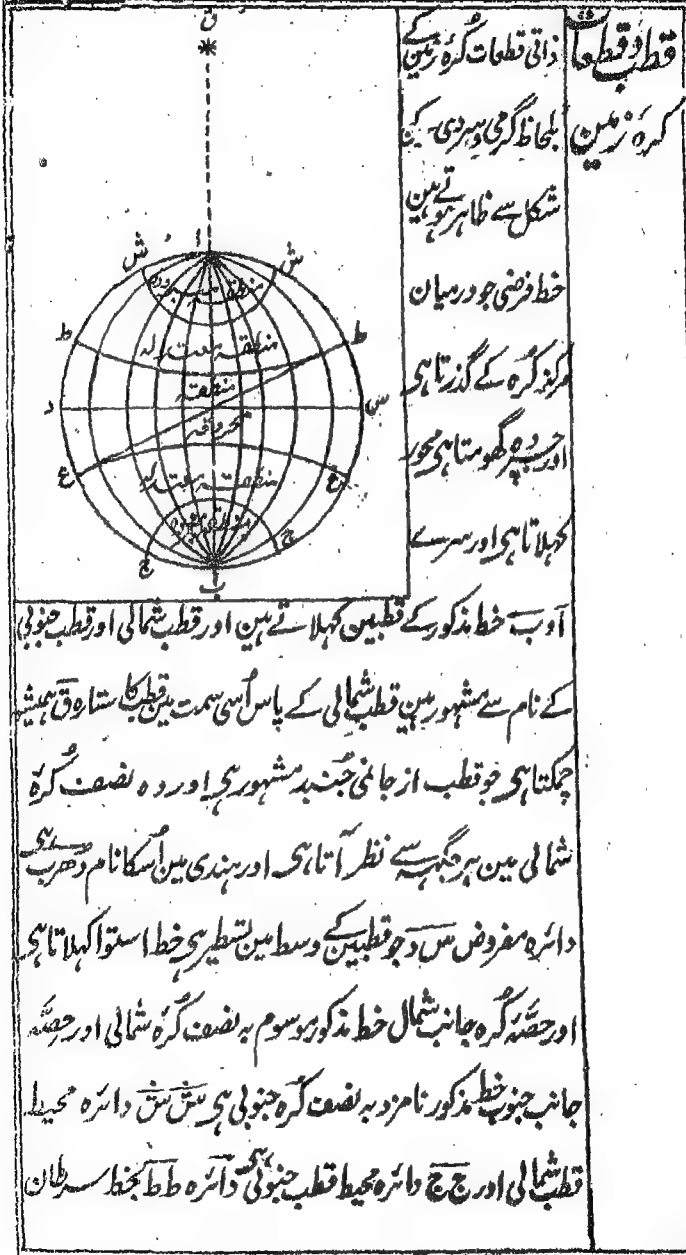 قطب وقطعات
کرۂ زمین
ذاتی قطعات کرۂ زمین کے
بلحاظ گرمی وسردی
شکل سے ظاہر ہوتے ہین
خط فرضی جو درمیان
مرکز کرہ کے گذرتا ہی
اور جسپر وہ گھومتا ہی محور
کہلاتا ہی اور سرے
ق
ا
ش
ش
منطقہ مبرودہ
ط
ط
منطقہ معتدلہ
منطقہ
محروقہ
د
س
ع
ع
منطقہ معتدلہ
منطقہ مبرودہ
ج
ج
ب
آ و ب خط مذکور کے قطبین کہلاتے ہین اور قطب شمالی اور قطب جنوبی
کے نام سے مشہور ہین قطب شمالی کے پاس اُسی سمت مین قطب کا ستارہ ق ہمیشہ
چمکتا ہی جو قطب از جا نمی جنبد مشہور ہی اور وہ نصف کُرۂ
شمالی مین ہر جگہہ سے نظر آتا ہی اور ہندی مین اُسکا نام دُھرب ہی
دائرہ مفروض س د جو قطبین کے وسط مین ہی خط استوا کہلاتا ہی
اور حصّۂ کُرہ جانب شمال خط مذکور موسوم بہ نصف کُرۂ شمالی اور حصّہ
جانب جنوب خط مذکور نامزد بہ نصف کُرہ جنوبی ہی ش ش دائرہ محیط
قطب شمالی اور ج ج دائرہ محیط قطب جنوبی ہی دائرہ ط ط بخط سرطان